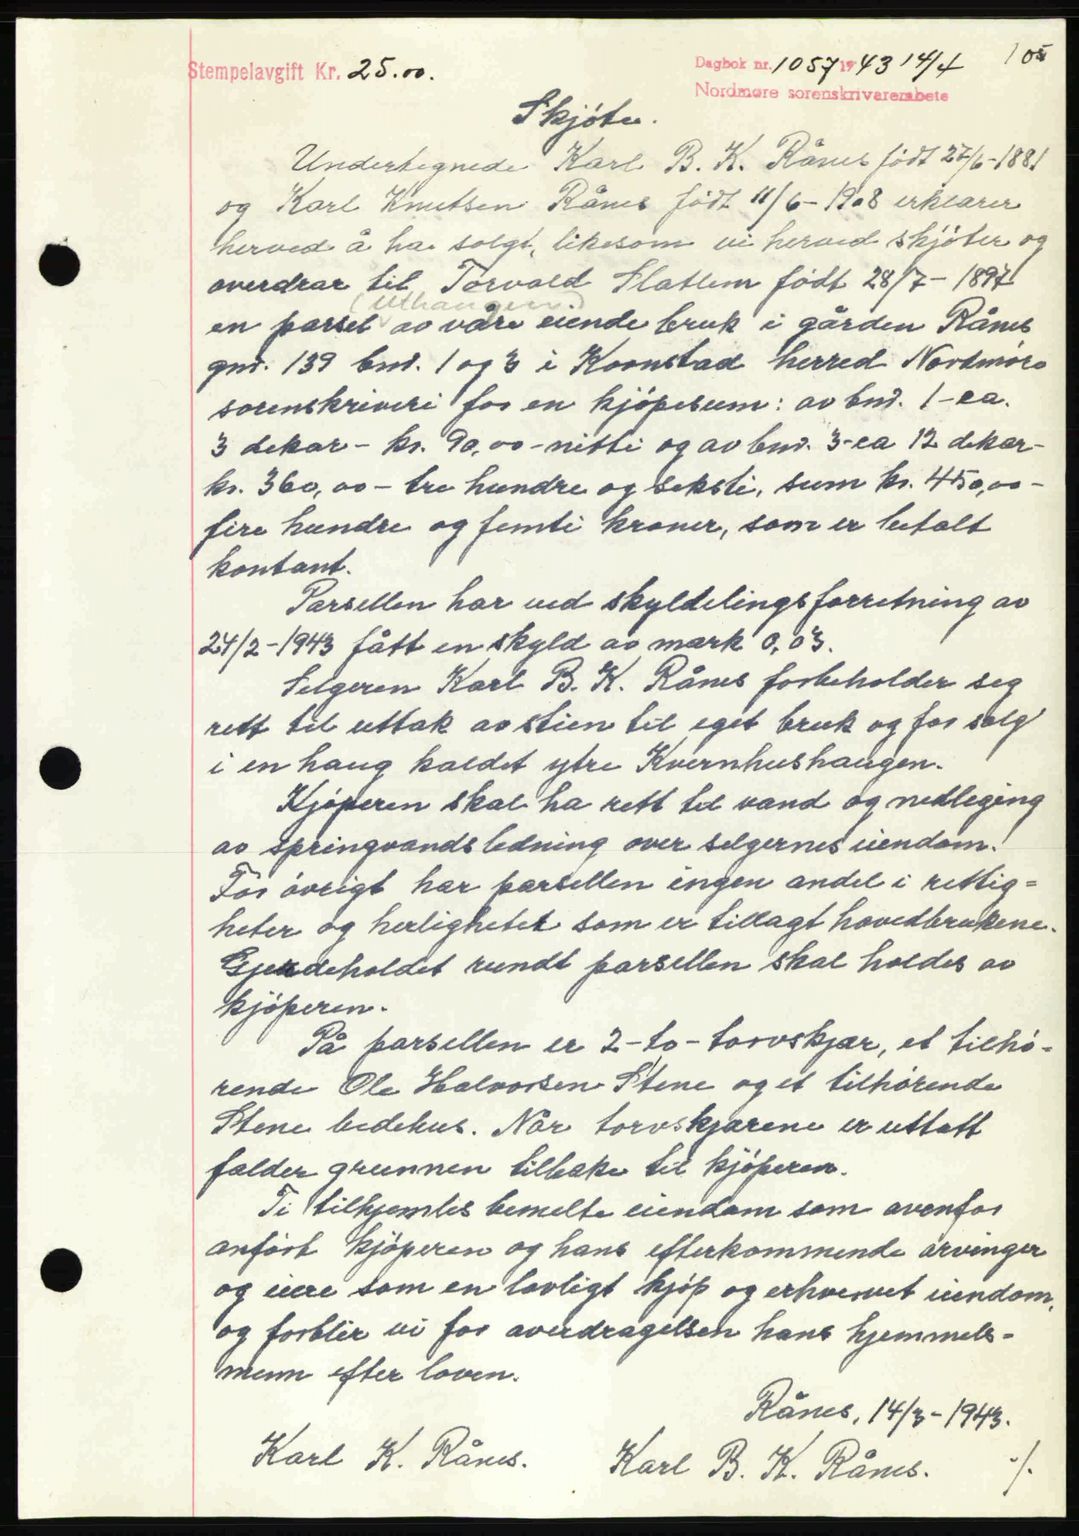 105
Stempelavgift Kr. 25.00.
Dagbok nr. 1057 19 43 14/4
Nordmøre sorenskriverembete
Skjøte.
Undertegnede Karl B. K. Rånes født 27/6-1881
og Karl Knutsen Rånes født 11/6-1908 erklærer
herved å ha solgt, likesom vi herved skjøter og
overdrar til Torvald Slatlem født 28/7-1897
(Uthaugen)
en parsel av våre eiende bruk i gården Rånes
gnr. 139 bnr. 1 og 3 i Kvernstad herred Nordmøre
sorenskriveri for en kjøpesum: av bnr. 1-ca.
3 dekar - kr. 90,00 - nitti og av bnr. 3-ca 12 dekar-
kr. 360,00 - tre hundre og seksti, sum kr. 450,00-
fire hundre og femti kroner, som er betalt
kontant.
Parsellen har ved skyldelingsforretning av
24/2-1943 fått en skyld av mark 0,03.
Selgeren Karl B. K. Rånes forbeholder seg
rett til uttak av stien til eget bruk og for salg
i en haug kaldet ytre Kvernhushaugen.
Kjøperen skal ha rett til vand og nedleging
av springvandsledning over selgernes eiendom.
For øvrigt har parsellen ingen andel i rettig=
heter og herligheter som er tillagt hovedbrukene.
Gjerdeholdet rundt parsellen skal holdes av
kjøperen.
På parsellen er 2-to-torvskjær, et tilhø-
rende Ole Halvorsen Stene og et tilhørende
Stene bedehus. Når torvskjærene er uttatt
falder grunnen tilbake til kjøperen.
Ti tilkjemtes bemelte eiendom som ovenfor
anført kjøperen og hans efterkommende arvinger
og eiere som en lovligt kjøp og erhvervet eiendom,
og forblir vi for overdragelsen hans hjemmels-
menn efter loven.
Rånes, 14/3-1943.
Karl K. Rånes. Karl B. K. Rånes. ./.